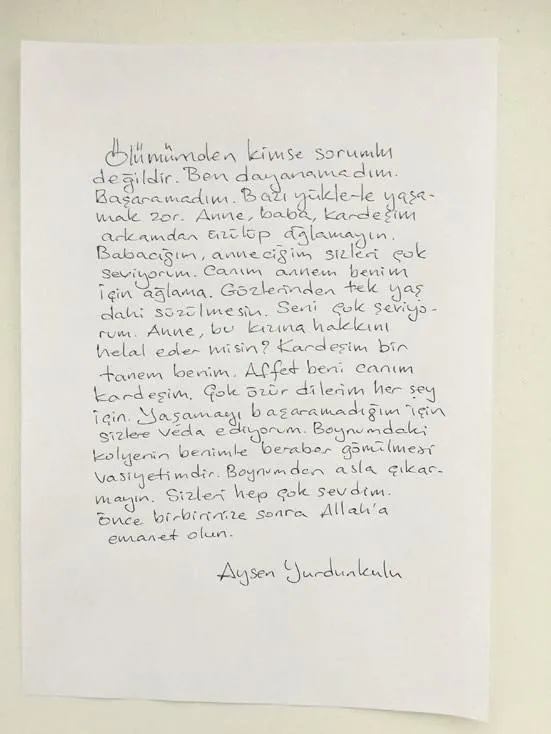 Ölümümden kimse sorumlu
değildir. Ben dayanamadım.
Başaramadım. Bazı yüklerle yaşa-
mak zor. Anne, baba, kardeşim
arkamdan üzülüp ağlamayın.
Babacığım, anneciğim sizleri çok
seviyorum. Canım annem benim
için ağlama. Gözlerinden tek yaş
dahi süzülmesin. Seni çok seviyo-
rum. Anne, bu kızına hakkını
helal eder misin? Kardeşim bir
tanem benim. Affet beni canım
kardeşim. Çok özür dilerim her şey
için. Yaşamayı başaramadığım için
sizlere veda ediyorum. Boynumdaki
kolyenin benimle beraber gömülmesi
vasiyetimdir. Boynumdan asla çıkar-
mayın. Sizleri hep çok sevdim.
Önce birbirinize sonra Allah'a
emanet olun.
Aysen Yurdunkulu